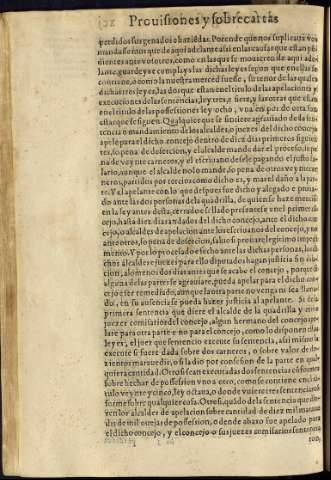 Prouisiones y sobrecartas
perdidos sus ganados o haziẽdas. Por ende que nos suplicauã vos
mandassemos que de aqui adelante assi en las causas que estan pẽ
dientes ante vosotros, como en las que se mouieren de aqui ade
lante, guardeys e cumplays las dichas leyes segun que en ellas se
contiene, o como la nuestra merced fuesse, su tenor de las quales
dichas tres leyes, las dos que estan en el titulo de las apelaciones y
execuciones de las sentencias, ley tres, y siete, y la otra es que esta
en el titulo de las possessiones ley ocho, vna en pos de otra son
estas que se siguen. Qualquier que se sintiere agrauiado de la sentẽ
cia o mandamiento de los alcaldes, o juezes del dicho concejo
apele para el dicho concejo dentro de diez dias primeros siguien
tes, so pena de desercion, y el alcalde mande dar el processo, so pe
na de veynte carneros, y el escriuano de se le pagando el justo sa
lario, aunque el alcalde no lo mande, so pena de otros veynte car
neros, partidos por tercios como dicho es, y mas el daño a la par
te. Y el apelante con lo que despues fue dicho y alegado y proua
do ante las dos personas de la quadrilla, de quien se haze mencion
en la ley antes desta, cerrado e sellado lo presente en el primer cõ
cejo, hasta diez jornadas del dicho concejo, ante el dicho conce
jo, o alcaldes de apelacion ante los escriuanos del concejo, y no
ante otros, so pena de desercion, saluo si prouare legitimo impedi
mento. Y por lo procedido e fecho ante las dichas personas, los di
chos alcaldes e juezes para ello diputados hagan justicia sin dila
cion, a lo menos dos dias antes que se acabe el concejo, porque si
alguna de las partes se agrauiare, pueda apelar para el dicho con
cejo e ser remediado, aunque la otra parte no venga ni sea llama
do, en su ausencia se pueda hazer justicia al apelante. Si de la
primera sentencia que diere el alcalde de la quadrilla y otro
juez er comissario del concejo, algun hermano del concejo ape
lare para otra parte e no para el concejo, como lo disponen dichas
leyes, el juez que sentencio execute su sentencia, assi mismo la
execute si fuere dada sobre dos carneros, o sobre valor de do
zientos marauedis, o si la dio por confession de la parte en qual
quiera cantidad. Otrosi sean executadas dos sentencias cõformes
sobre hechar de possession vno a otro, como se contiene en el ti
tulo veynte y cinco, ley octaua, o donde vuiere tres sentencias cõ
formes sobre qualquier cosa. Otrosi, quãdo de la sentencia que die
ren los alcaldes de apelacion sobre cantidad de diez mil marauedis
dis de mil ouejas de possession, o dende abaxo fue apelado para
el dicho concejo, y el concejo o sus juezes comissarios sentenciaren